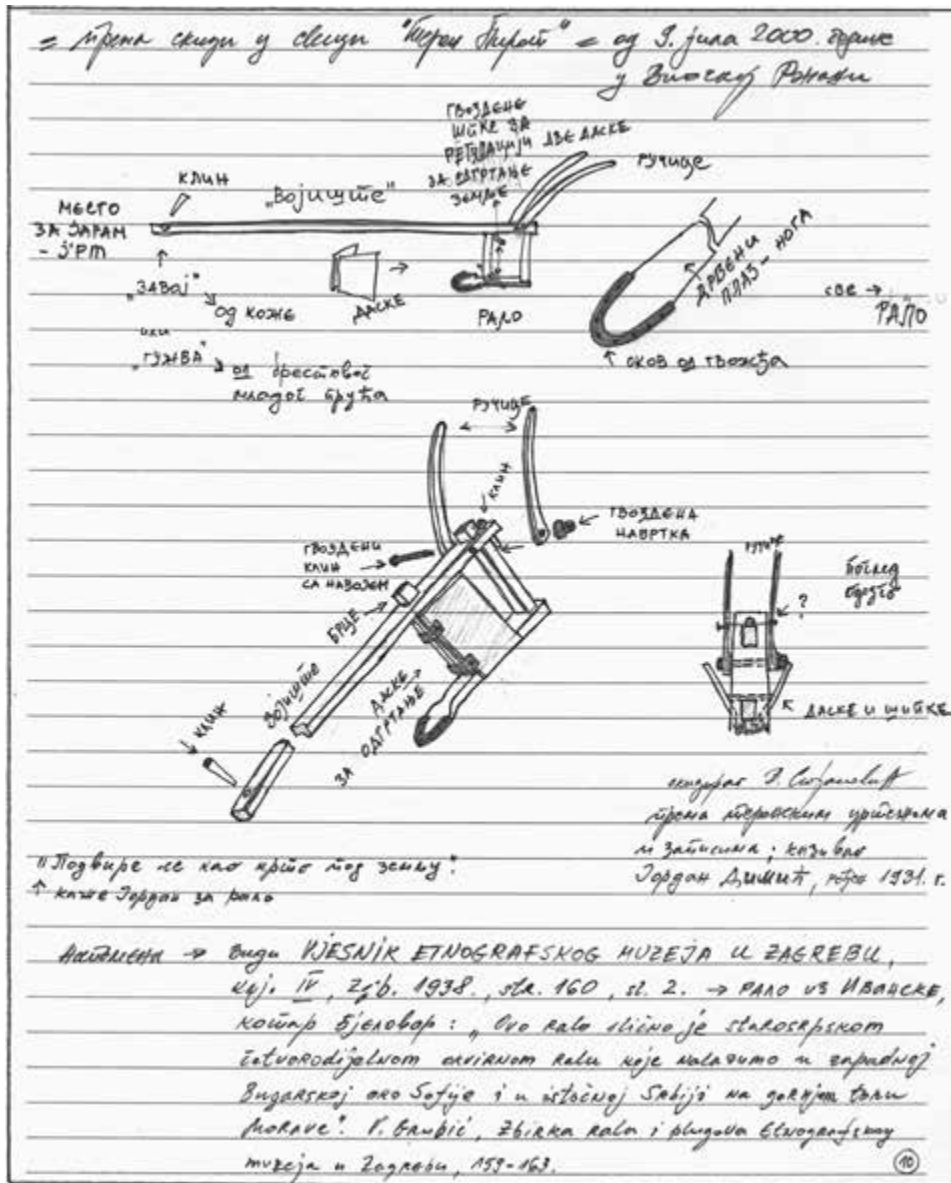 = према скици у свесци "Терен Пирот" = од 9. јула 2000. године
у Височкој Ржани
ГВОЗДЕНЕ
ШИПКЕ ЗА
РЕГУЛАЦИЈУ
ЗА ОДГРТАЊЕ
ЗЕМЉЕ
ДВЕ ДАСКЕ
РУЧИЦЕ
КЛИН
„Војиште"
МЕСТО
ЗА ЈАРАМ
- ЈРМ
„ЗАВОЈ"
ОД КОЖЕ
или
„ГУЖВА"
од брестовог
младог прућа
ДАСКЕ
РАЛО
ДРВЕНИ
ПЛАЗ - НОГА
ОКОВ ОД ГВОЖЂА
СВЕ →
РАЛО
РУЧИЦЕ
КЛИН
ГВОЗДЕНА
НАВРТКА
ГВОЗДЕНИ
КЛИН
СА НАВОЈЕМ
БРЦЕ
ВОЈИШТЕ
ДАСКЕ
ЗА ОДГРТАЊЕ
КЛИН
РУЧИЦЕ
поглед
?
ДАСКЕ И ШИПКЕ
скицирао
према теренским цртежима
и записима; казивао
Јордан Димић, рођен 1931. г.
"Подвире се као крто под земљу".
↑ каже Јордан за рало
НАПОМЕНА → види VJESNIK ETNOGRAFSKOG MUZEJA U ZAGREBU,
књ. IV, Zgb. 1938., str. 160, sl. 2. → РАЛО ИЗ ИВАНСКЕ,
котар Бјеловар: „Ovo ralo slično je starosrpskom
četvorodijelnom okvirnom ralu koje nalazimo u zapadnoj
Bugarskoj oko Sofije i u istočnoj Srbiji na gornjem toku
Morave". V. Grubić, Zbirka rala i plugova Etnografskog
muzeja u Zagrebu, 159-163.
10